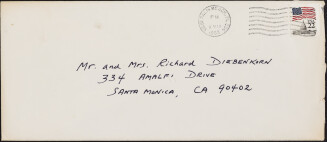 PM
22
Mr. and Mrs. Richard Diebenkorn
334 Amalfi Drive
Santa Monica, CA 90402